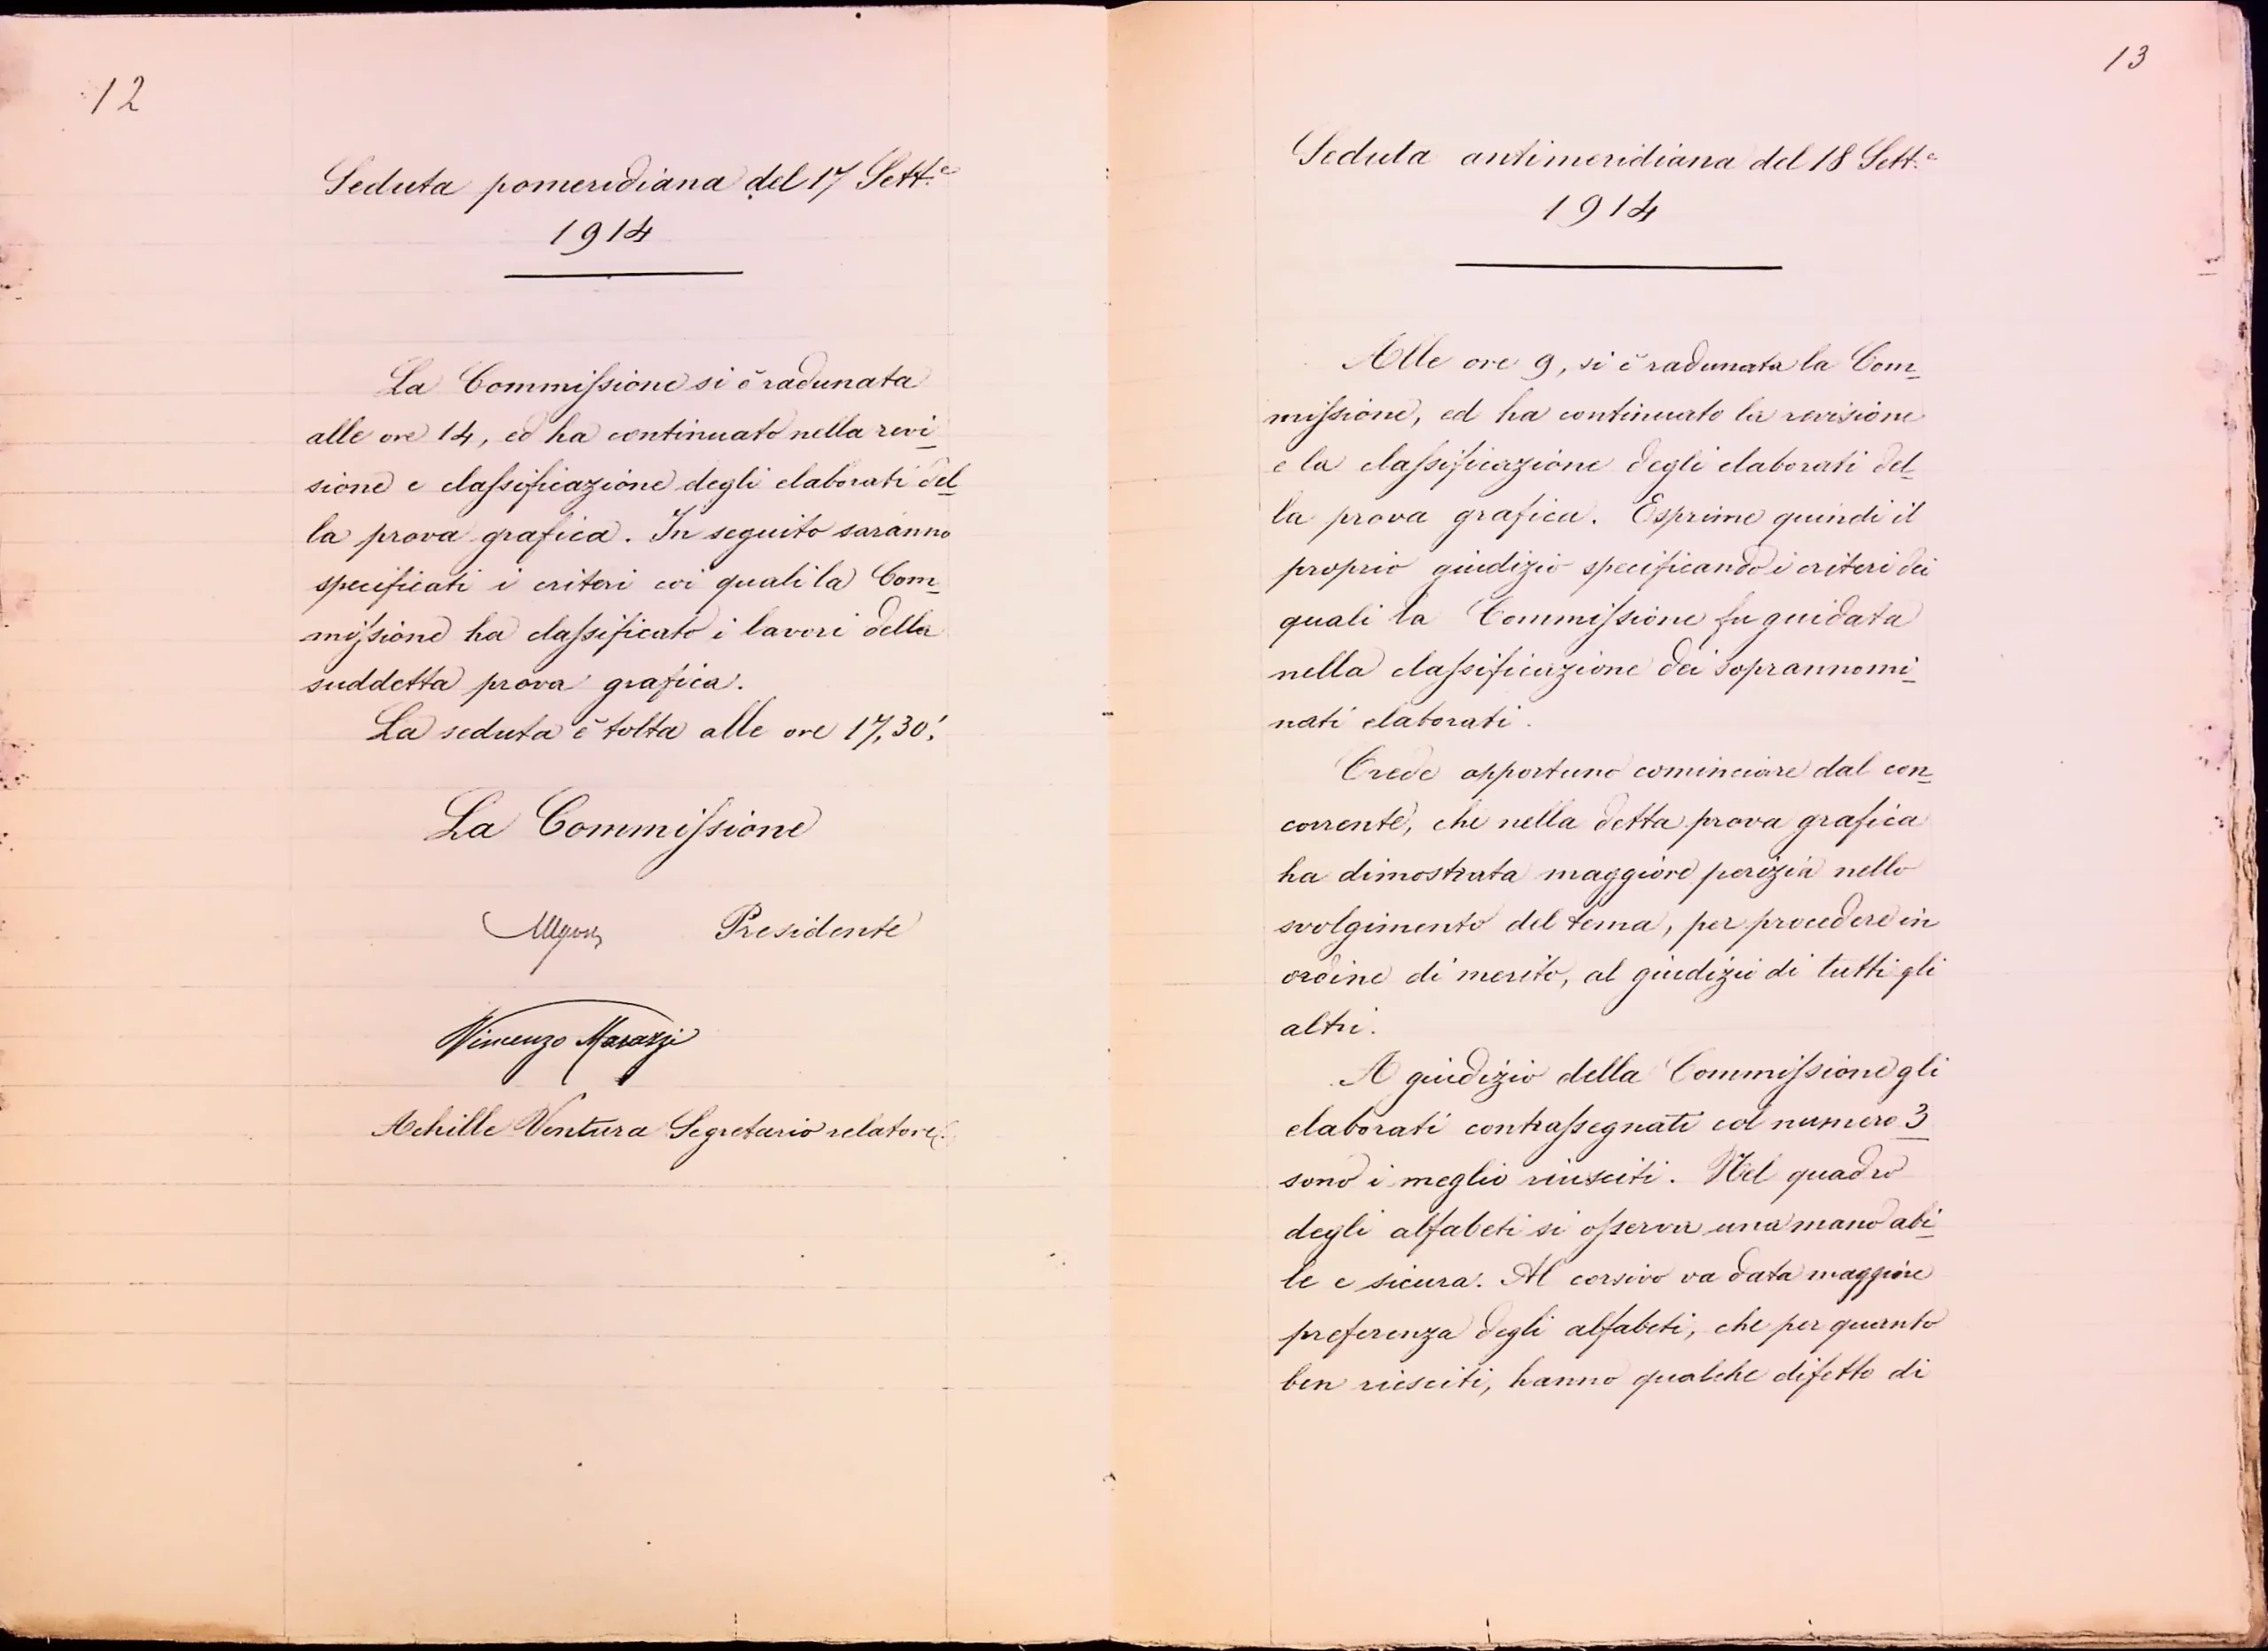 12
Seduta pomeridiana del 17 Sett.e
1914
La Commissione si è radunata
alle ore 14, ed ha continuato nella revi-
sione e classificazione degli elaborati del-
la prova grafica. In seguito saranno
specificati i criteri coi quali la Com-
missione ha classificato i lavori della
suddetta prova grafica.
La seduta è tolta alle ore 17,30'.
La Commissione
Presidente
Vincenzo Marazzi
Achille Ventura Segretario relatore.
13
Seduta antimeridiana del 18 Sett.e
1914
Alle ore 9, si è radunata la Com-
missione, ed ha continuato la revisione
e la classificazione degli elaborati del-
la prova grafica. Esprime quindi il
proprio giudizio specificando i criteri dei
quali la Commissione fu guidata
nella classificazione dei soprannomi-
nati elaborati.
Crede opportuno cominciare dal con-
corrente, che nella detta prova grafica
ha dimostrata maggiore perizia nello
svolgimento del tema, per procedere in
ordine di merito, al giudizio di tutti gli
altri.
A giudizio della Commissione gli
elaborati contrassegnati col numero 3
sono i meglio riusciti. Nel quadro
degli alfabeti si osserva una mano abi-
le e sicura. Al corsivo va data maggiore
preferenza degli alfabeti, che per quanto
ben riesciti, hanno qualche difetto di